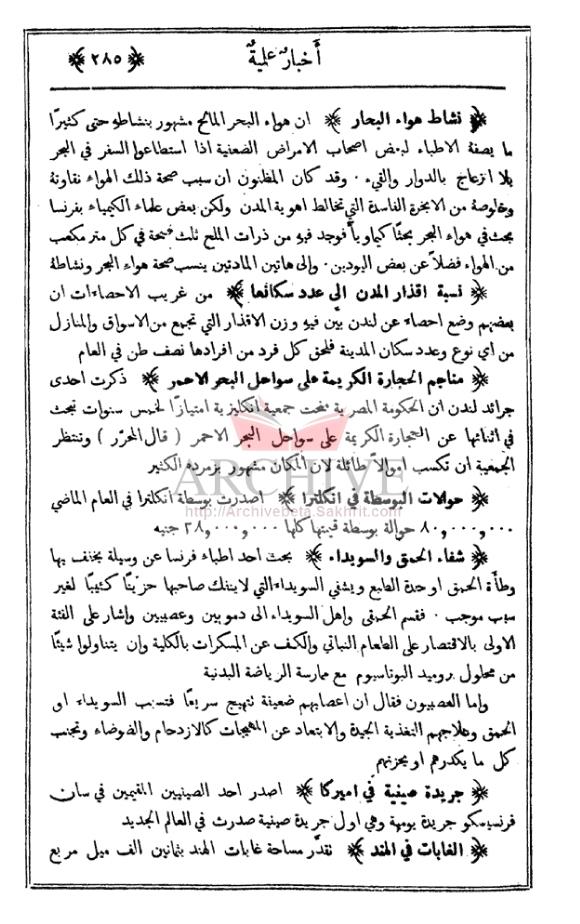 أخبار علمية ﴿ ٢٨٥ ﴾
﴿ نشاط هواء البحار ﴾ ان هواء البحر المالح مشهور بنشاطهِ حتى كثيرًا
ما يصفهُ الاطباء لبعض اصحاب الامراض الضعنية اذا استطاعوا السفر في البحر
بلا انزعاج بالدوار والقيء ٠ وقد كان المظنون ان سبب صحة ذلك الهواء نقاوتهُ
وخلوصهُ من الابخرة الفاسدة التي تخالط اهوية المدن ولكن بعض علماء الكيمياء بفرنسا
بحث في هواء البحر بحثًا كيماويًّا فوجد فيهِ من ذرات الملح ثلث قمحة في كل متر مكعب
من الهواء فضلاً عن بعض اليودين ٠ والى هاتين المادتين ينسب صحة هواء البحر ونشاطهُ
﴿ نسبة اقذار المدن الى عدد سكانها ﴾ من غريب الاحصاءات ان
بعضهم وضع احصاء عن لندن بيَّن فيهِ وزن الاقذار التي تجمع من الاسواق والمنازل
من اي نوع وعدد سكان المدينة فلحق كل فرد من افرادها نصف طن في العام
﴿ مناجم الحجارة الكريمة على سواحل البحر الاحمر ﴾ ذكرت احدى
جرائد لندن ان الحكومة المصرية منحت جمعية انكليزية امتيازًا لخمس سنوات تبحث
في اثنائها عن الحجارة الكريمة على سواحل البحر الاحمر ( قال المحرّر ) وتنتظر
الجمعية ان تكسب اموالاً طائلة لان المكان مشهور بزمرده الكثير
ARCHIVE
http://Archivebeta.Sakhrit.com
﴿ حولات البوسطة في انكلترا ﴾ اصدرت بوسطة انكلترا في العام الماضي
٨٠,٠٠٠,٠٠٠ حوالة بوسطة قيمتها كلها ٢٨,٠٠٠,٠٠٠ جنيه
﴿ شفاء الحمق والسويداء ﴾ بحث احد اطباء فرنسا عن وسيلة يخفف بها
وطأة الحمق او حدة الطبع ويشفي السويداء التي لا ينفك صاحبها حزينًا كئيبًا لغير
سبب موجب ٠ فقسم الحمقى واهل السويداء الى دمويين وعصبيين واشار على الفئة
الاولى بالاقتصار على الطعام النباتي والكف عن المسكرات بالكلية وان يتناولوا شيئًا
من محلول بروميد البوتاسيوم مع ممارسة الرياضة البدنية
واما العصبيون فقال ان اعصابهم ضعيفة تتهيج سريعًا فتسبب السويداء او
الحمق وعلاجهم التغذية الجيدة والابتعاد عن المهيجات كالازدحام والضوضاء وتجنب
كل ما يكدرهم او يحزنهم
﴿ جريدة صينية في اميركا ﴾ اصدر احد الصينيين المقيمين في سان
فرنسيسكو جريدة يومية وهي اول جريدة صينية صدرت في العالم الجديد
﴿ الغابات في الهند ﴾ تقدَّر مساحة غابات الهند بثمانين الف ميل مربع